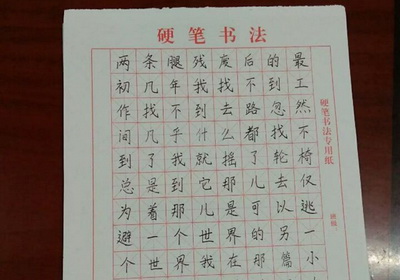 硬笔书法
两条腿残废后的最
初几年我找不到工
作找不到去路忽然
间几乎什么都找不
到了我就摇了轮椅
总是到它那儿去仅
为着那儿是可以逃
避一个世界的另一
个世界我在那篇小
硬笔书法专用纸